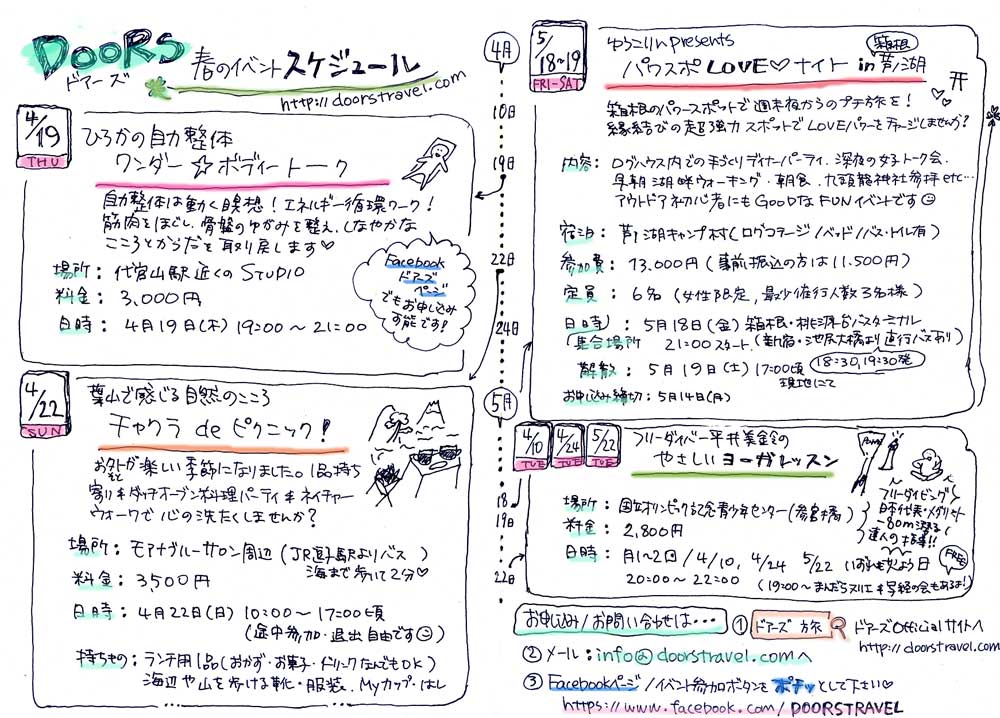 DOORS
ドアーズ
春のイベントスケジュール
http://doorstravel.com
4/19
THU
ひろかの自力整体
ワンダー☆ボディートーク
自力整体は動く瞑想！エネルギー循環ワーク！
筋肉をほぐし、骨盤のゆがみを整え、しなやかな
こころとからだを取り戻します♡
場所：代官山駅近くのSTUDIO
料金：3,000円
日時：4月19日(木) 19:00～21:00
Facebook
ドアーズ
ページ
でもお申し込み
可能です！
4/22
SUN
葉山で感じる自然のこころ
チャクラ de ピクニック！
お外が楽しい季節になりました。1品持ち
寄り＊ダッチオーブン料理パーティ＊ネイチャー
ウォークで心の洗たくしませんか？
場所：モアナブルーサロン周辺(JR逗子駅よりバス)
海まで歩いて2分♡
料金：3500円
日時：4月22日(日) 10:00～17:00頃
(途中参加・退出自由です☺)
持ちもの：ランチ用1品(おかず・お菓子・ドリンクなんでもOK)
海辺や山を歩ける靴・服装、Myカップ・はし
4月
10日
19日
22日
24日
5月
18
19日
22日
5/18～19
FRI-SAT
ゆうこりんpresents
パワスポLOVE♡ナイト in 箱根芦ノ湖
箱根のパワースポットで週末夜からのプチ旅を！
縁結びの超強力スポットでLOVEパワーをチャージしませんか？
内容：ログハウス内での手づくりディナーパーティ、深夜の女子トーク会、
早朝湖畔ウォーキング・朝食、九頭龍神社参拝etc…
アウトドア初心者にもGOODなFUNイベントです☺
宿泊：芦ノ湖キャンプ村(ログコテージ/ベッド/バス・トイレ有)
参加費：13,000円(事前振込の方は11,500円)
定員：6名(女性限定、最少催行人数3名様)
日時/集合場所：5月18日(金)箱根・桃源台バスターミナル
21:00スタート(新宿・池尻大橋より直行バスあり)
18:30,19:30発
解散：5月19日(土)17:00頃
現地にて
お申し込み締切：5月14日(月)
4/10 TUE
4/24 TUE
5/22 TUE
フリーダイバー平井美鈴の
やさしいヨーガレッスン
フリーダイビング
日本代表・メダリスト
-80m潜る
達人の指導!!
場所：国立オリンピック記念青少年センター(参宮橋)
料金：2,800円
日時：月1～2回/4/10, 4/24 5/22 いずれも火よう日
20:00～22:00
(19:00～まんだらヌリエ＊写経の会もあるよ！)
FREE
お申し込み/お問い合わせは…
① ドアーズ 旅 ドアーズOfficialサイトへ
http://doorstravel.com
② メール：info@doorstravel.comへ
③ Facebookページ/イベント参加ボタンをポチッとして下さい♡
https://www.facebook.com/DOORSTRAVEL